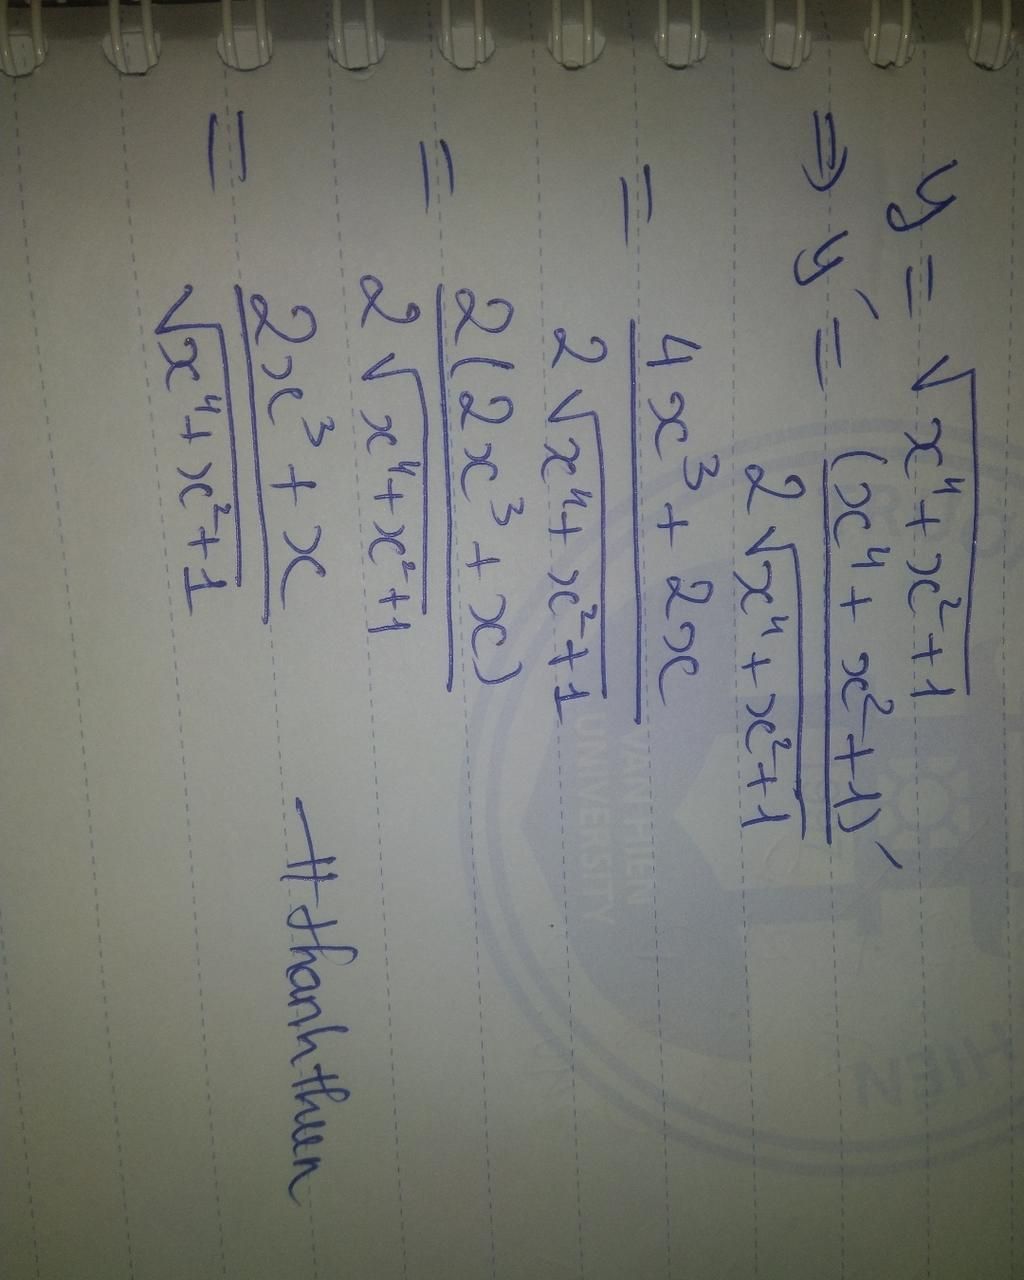 y = √(x⁴ + x² + 1)
⇒ y′ = (x⁴ + x² + 1)′ / 2√(x⁴ + x² + 1)
= 4x³ + 2x / 2√(x⁴ + x² + 1)
= 2(2x³ + x) / 2√(x⁴ + x² + 1)
= 2x³ + x / √(x⁴ + x² + 1)
VAN HIEN
UNIVERSITY